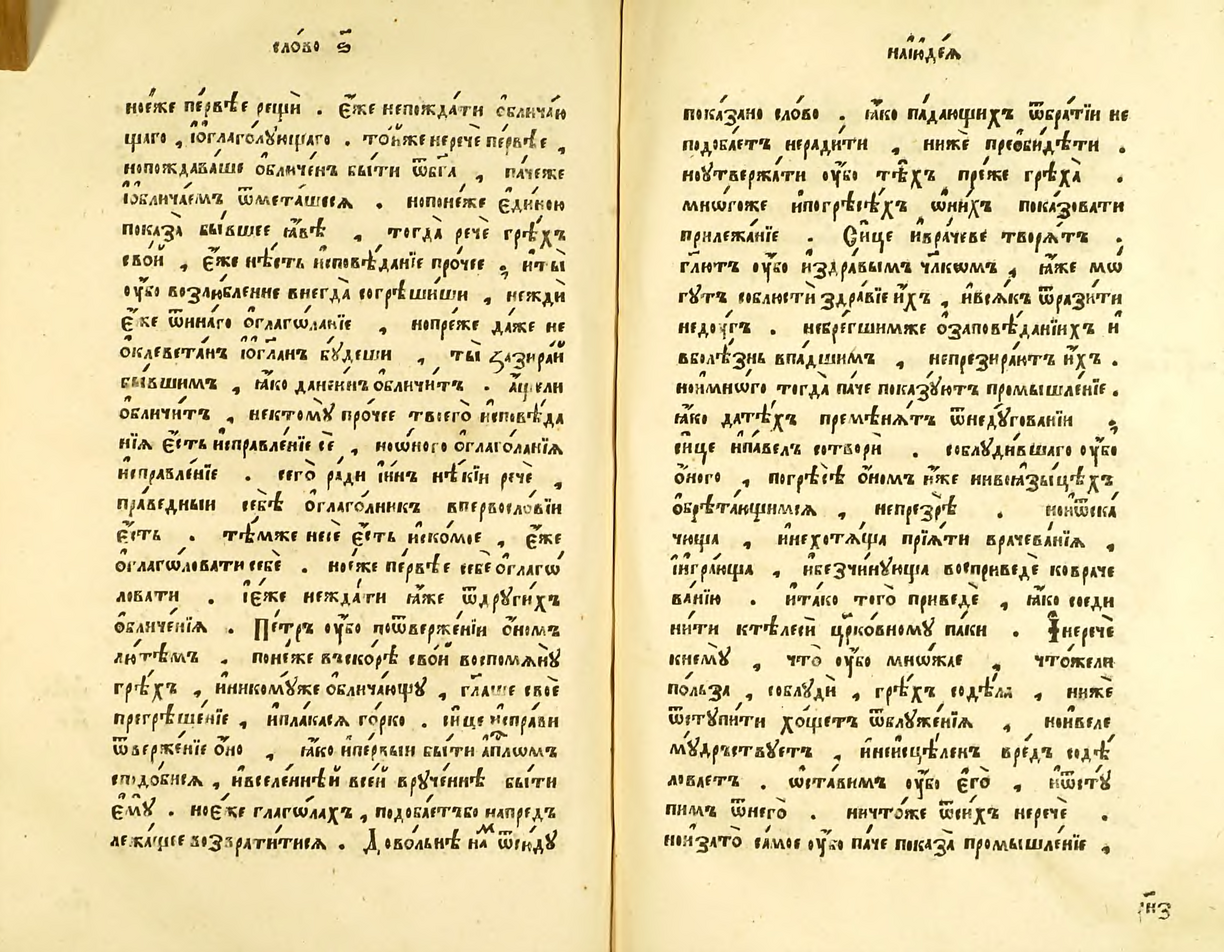 сло́во ѕ҃
ное́же пе́рвѣе рещѝ . є҆́же непожда́ти ѡ҆блича́ю
щаго , и҆ѡ҆глаго́лꙋющаго . то́йже неречѐ пе́рвѣе ,
нопождава́ше ѡ҆бличе́нъ бы́ти ѿбг҃а , па́чеже
и҆ѡ҆блича́емъ ѿмета́шесѧ . нопоне́же є҆ди́ною
показа̀ бы́вшее ꙗ҆́вѣ , тогда̀ речѐ грѣ́хъ
сво́й , є҆́же нѣ́сть и҆сповѣ́данїе про́чее . и҆ты̀
ᲂу҆́бо возлю́бленне внегда̀ согрѣши́ши , неждѝ
є҆́же ѿи́наго ѡ҆глаго́ланїе , нопре́же да́же не
ѡ҆клевета́нъ и҆ѡ҆гла́нъ бꙋ́деши , ты̀ зазира́й
бы́вшимъ , ꙗ҆́ко да́неи́нъ ѡ҆бличи́тъ . а҆́щели
ѡ҆бличи́тъ , нектомꙋ̀ про́чее твоего̀ и҆сповѣ́да
нїѧ є҆́сть и҆справле́нїе сѐ , но́ѻного ѡ҆глаго́ланїѧ
и҆справле́нїе . сего̀ ра́ди и҆и́нъ нѣ́кїи речѐ ,
пра́ведныи себѣ̀ ѡ҆глаго́лникъ впервосло́вїи
є҆́сть . тѣ́мже несѐ є҆́сть и҆ско́мое , є҆́же
ѡ҆глагѡ́ловати себѐ . ное́же пе́рвѣе себѐ ѡ҆глагѡ́
ловати . и҆є҆́же нежда́ти ꙗ҆́же ѿдрꙋги́хъ
ѡ҆бличе́нїѧ . Пе́тръ ᲂу҆́бо поѿверже́нїи ѻ҆́номъ
лю́тѣмъ . поне́же въско́рѣ сво́й воспомѧнꙋ̀
грѣ́хъ , и҆никомꙋ́же ѡ҆блича́ющꙋ , гл҃аше своѐ
прегрѣше́нїе , и҆пла́касѧ го́рко . си́це и҆спра́ви
ѿверже́нїе ѻ҆́но , ꙗ҆́ко и҆пе́рвыи бы́ти а҆пⷭ҇лѡмъ
сподо́бисѧ , и҆вселе́ннѣй все́й врꙋче́ннѣ бы́ти
є҆мꙋ̀ . ное́же глаго́лахъ , подоба́етъбо напре́дъ
лежа́щее возврати́тисѧ . Дово́льнѣ на́мъ ѿсю́дꙋ
наїꙋде́ѧ
пока́зано сло́во . ꙗ҆́ко па́дающихъ ѿбра́тїи не
подоба́етъ неради́ти , нижѐ преѻби́дѣти .
ноꙋтвержа́ти ᲂу҆́бо тѣ́хъ пре́же грѣха̀ .
мнѡ́гоже и҆погрѣсѣ́хъ ѻ҆ни́хъ показо́вати
прилежа́нїе . Си́це и҆враче́ве творѧ́тъ .
гл҃ютъ ᲂу҆́бо и҆здра́вымъ чл҃кѡмъ , ꙗ҆́же мѡ́
гꙋтъ соблюстѝ здра́вїе и҆́хъ , и҆всѧ́къ ѿрази́ти
недꙋ́гъ . небре́гшимже ѡ҆за́повѣданїихъ и҆
вболѣ́знь впа́дшимъ , непрезира́ютъ и҆́хъ .
ноимно́го тогда̀ па́че пока́зꙋютъ промышле́нїе .
ꙗ҆́ко датѣ́хъ премѣнѧ́тъ ѿнедꙋгова́нїи .
си́це и҆па́велъ сотворѝ . соблꙋди́вшаго ᲂу҆́бо
ѻ҆́ного , погрѣ́сѣ ѻ҆́номъ и҆́же нивоꙗзы́цѣхъ
ѡ҆брѣта́ющимсѧ , непрезрѣ̀ . ноиѿска́
чюща , и҆нехотѧ́ща прїѧ́ти врачева́нїѧ ,
и҆и҆гра́юща , и҆безчи́нꙋюща воспри́веде ковраче
ва́нїю . и҆та́ко того̀ приведѐ , ꙗ҆́ко соеди
ни́ти ктѣ́леси цр҃ко́вномꙋ па́ки . І҆неречѐ
кнемꙋ̀ , что̀ ᲂу҆́бо мно́жае , что́жели
по́льза , соблꙋдѝ , грѣ́хъ содѣ́ла , нижѐ
ѿстꙋпи́ти хо́щетъ ѿблꙋже́нїѧ , ноивеле
мꙋ́дръствꙋетъ , и҆неисцѣ́ленъ вре́дъ содѣ́
ловаетъ . ѡ҆ста́вимъ ᲂу҆́бо є҆го̀ , и҆ѿстꙋ́
пимъ ѿнего̀ . ничто́же ѿси́хъ неречѐ .
ноизато̀ са́мое ᲂу҆́бо па́че показа̀ промышле́нїе ,